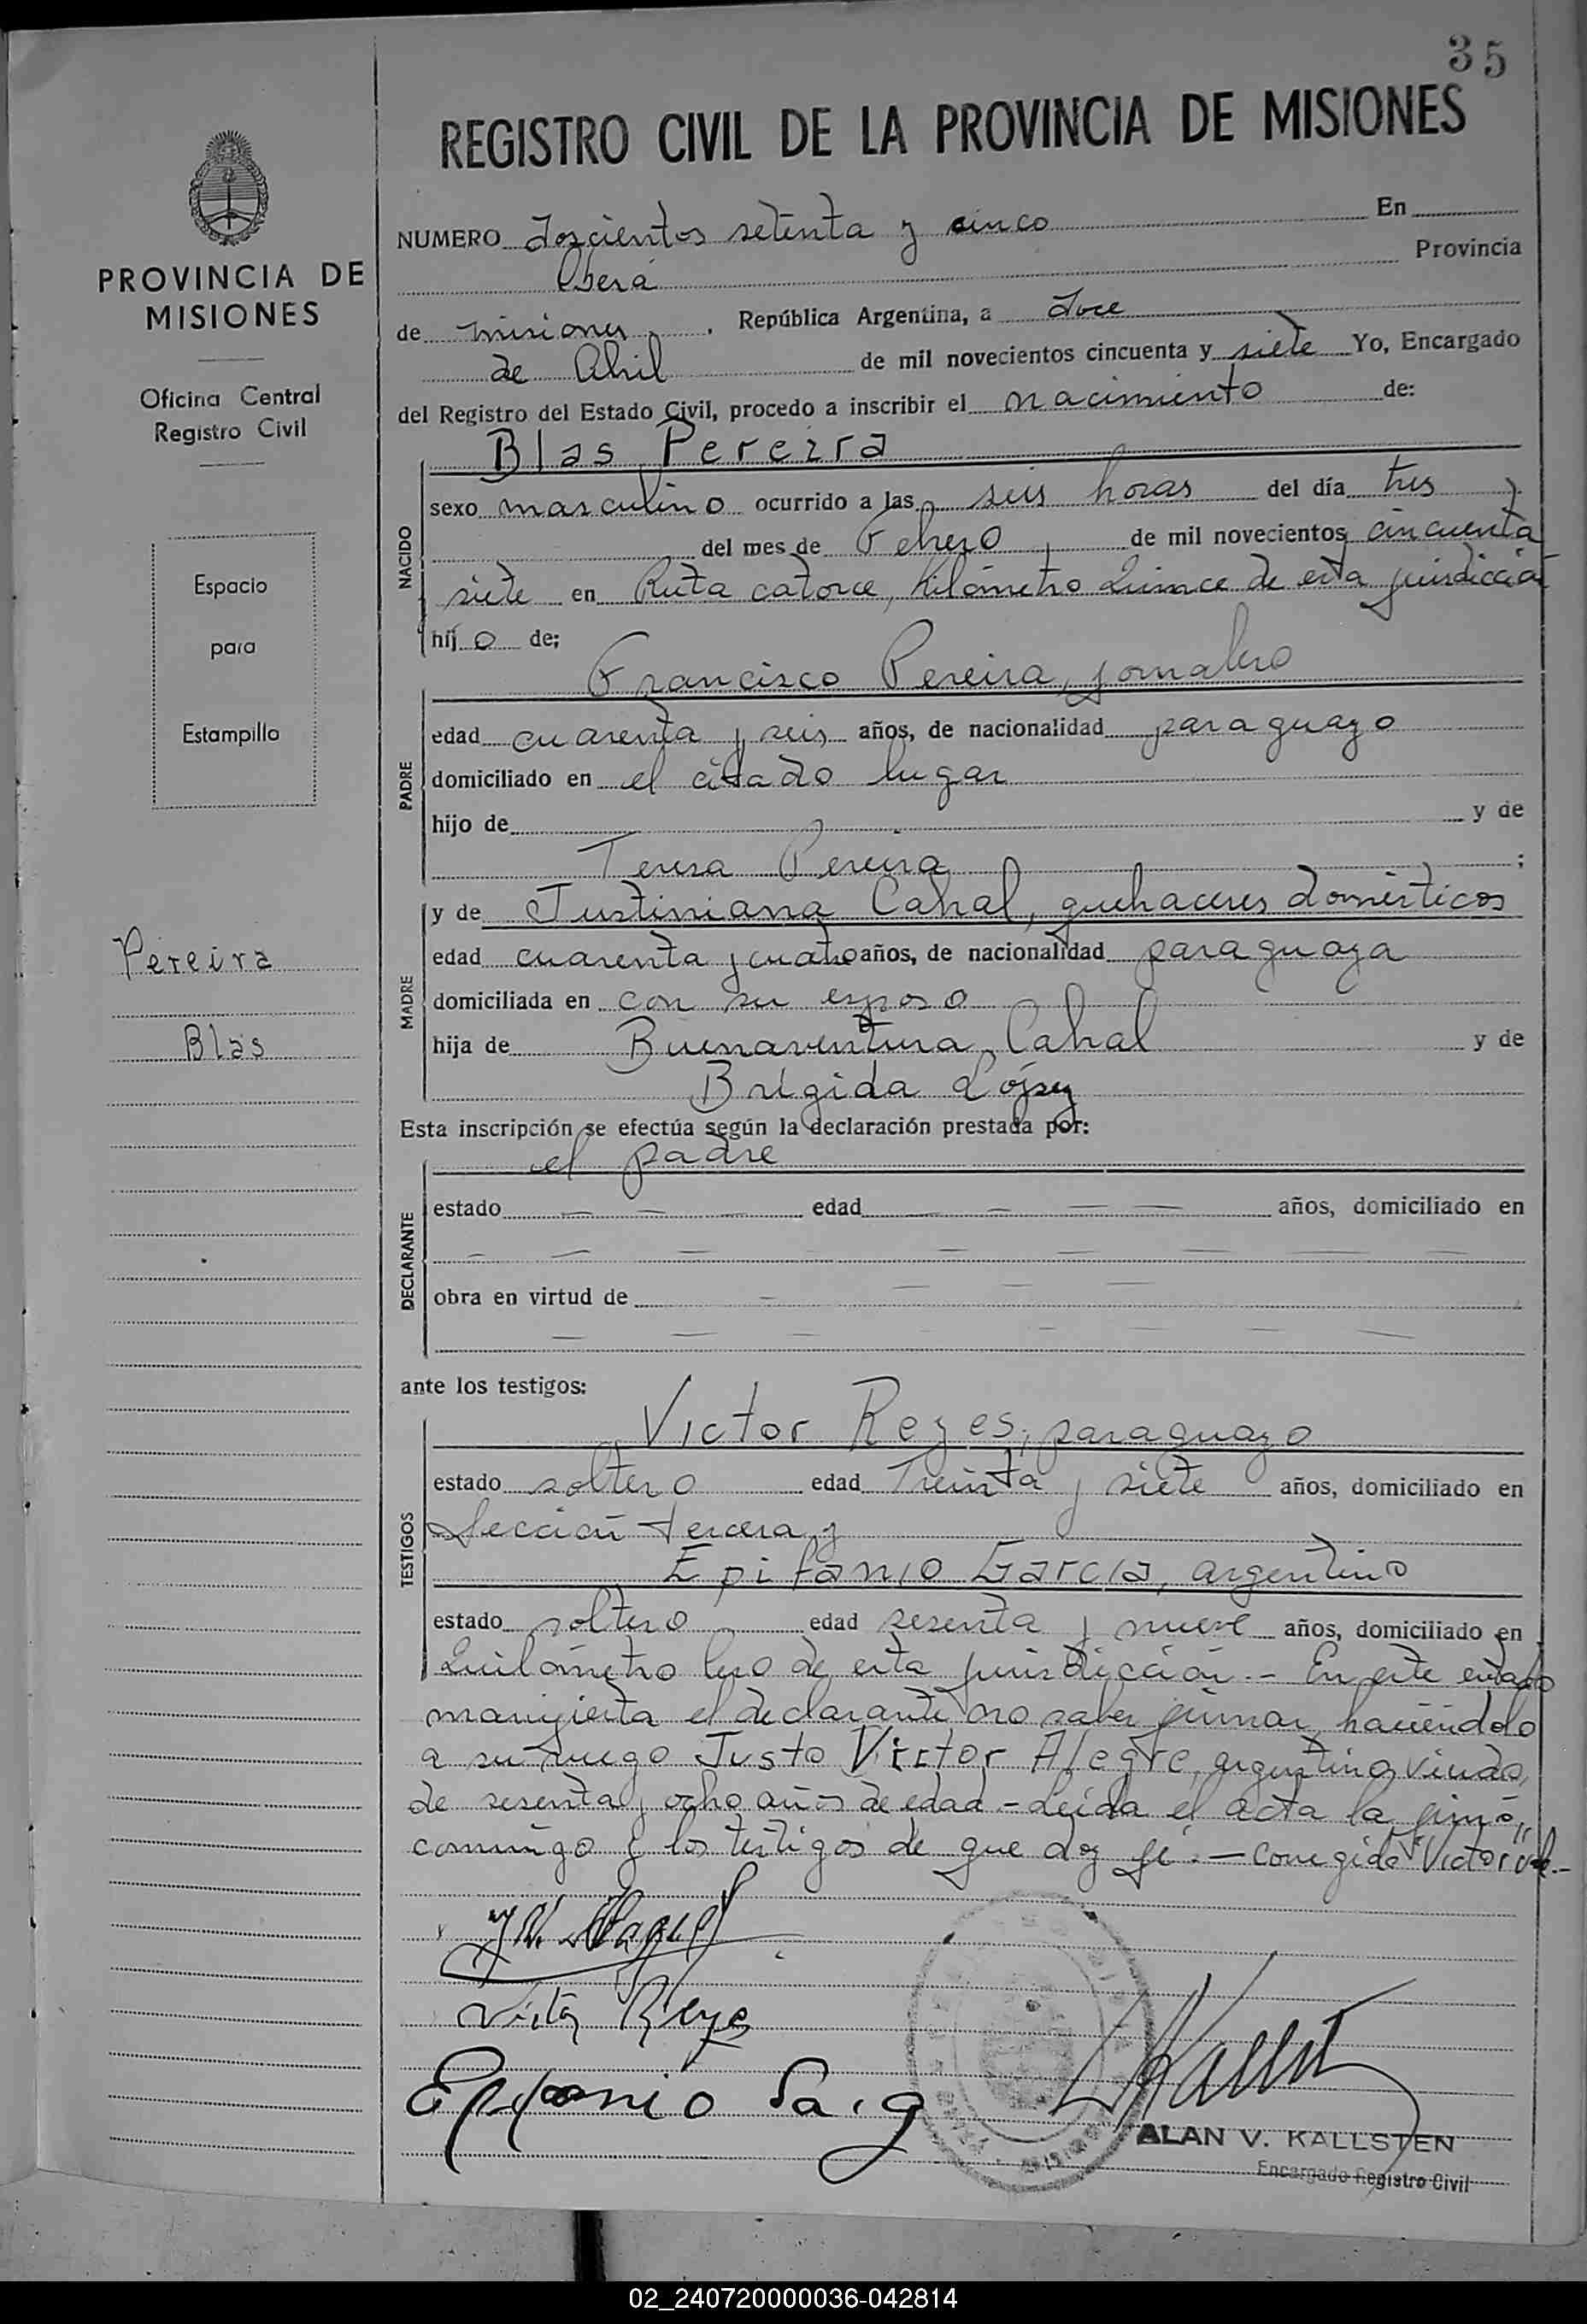 35
REGISTRO CIVIL DE LA PROVINCIA DE MISIONES
NUMERO doscientos setenta y cinco En
Oberá Provincia
de misiones, República Argentina, a doce
de Abril de mil novecientos cincuenta y siete Yo, Encargado
del Registro del Estado Civil, procedo a inscribir el nacimiento de:
Blas Pereira
NACIDO
sexo masculino ocurrido a las seis horas del día tres
del mes de Febrero, de mil novecientos cincuenta y
siete en Ruta catorce, Kilómetro Quince de esta jurisdicción
hij o de;
Francisco Pereira, jornalero
PADRE
edad cuarenta y seis años, de nacionalidad paraguayo
domiciliado en el citado lugar
hijo de y de
Teresa Pereira ;
y de Justiniana Cabral, quehaceres domésticos
MADRE
edad cuarenta y cuatro años, de nacionalidad paraguaya
domiciliada en con su esposo
hija de Buenaventura Cabral y de
Brígida López
Esta inscripción se efectúa según la declaración prestada por:
el padre
DECLARANTE
estado — — — edad — — — — años, domiciliado en
— — — — — — — —
obra en virtud de — — — —
— — — — — — —
ante los testigos:
Victor Reyes, paraguayo
TESTIGOS
estado soltero edad Treinta y siete años, domiciliado en
Sección tercera y
Epifanio Garcia, argentino
estado soltero edad sesenta y nueve años, domiciliado en
Quilómetro de esta jurisdicción.- En este estado
manifiesta el declarante no saber firmar haciéndolo
a su ruego Justo Victor Alegre, argentino, viudo,
de sesenta y ocho años de edad - Leída el acta la firmó,,
conmigo y los testigos de que doy fé. — Corregido "Victor" vale.-
Victor Reyes
Epifanio
ALAN V. KALLSTEN
Encargado Registro Civil
PROVINCIA DE
MISIONES
Oficina Central
Registro Civil
Espacio
para
Estampilla
Pereira
Blas
02_240720000036-042814